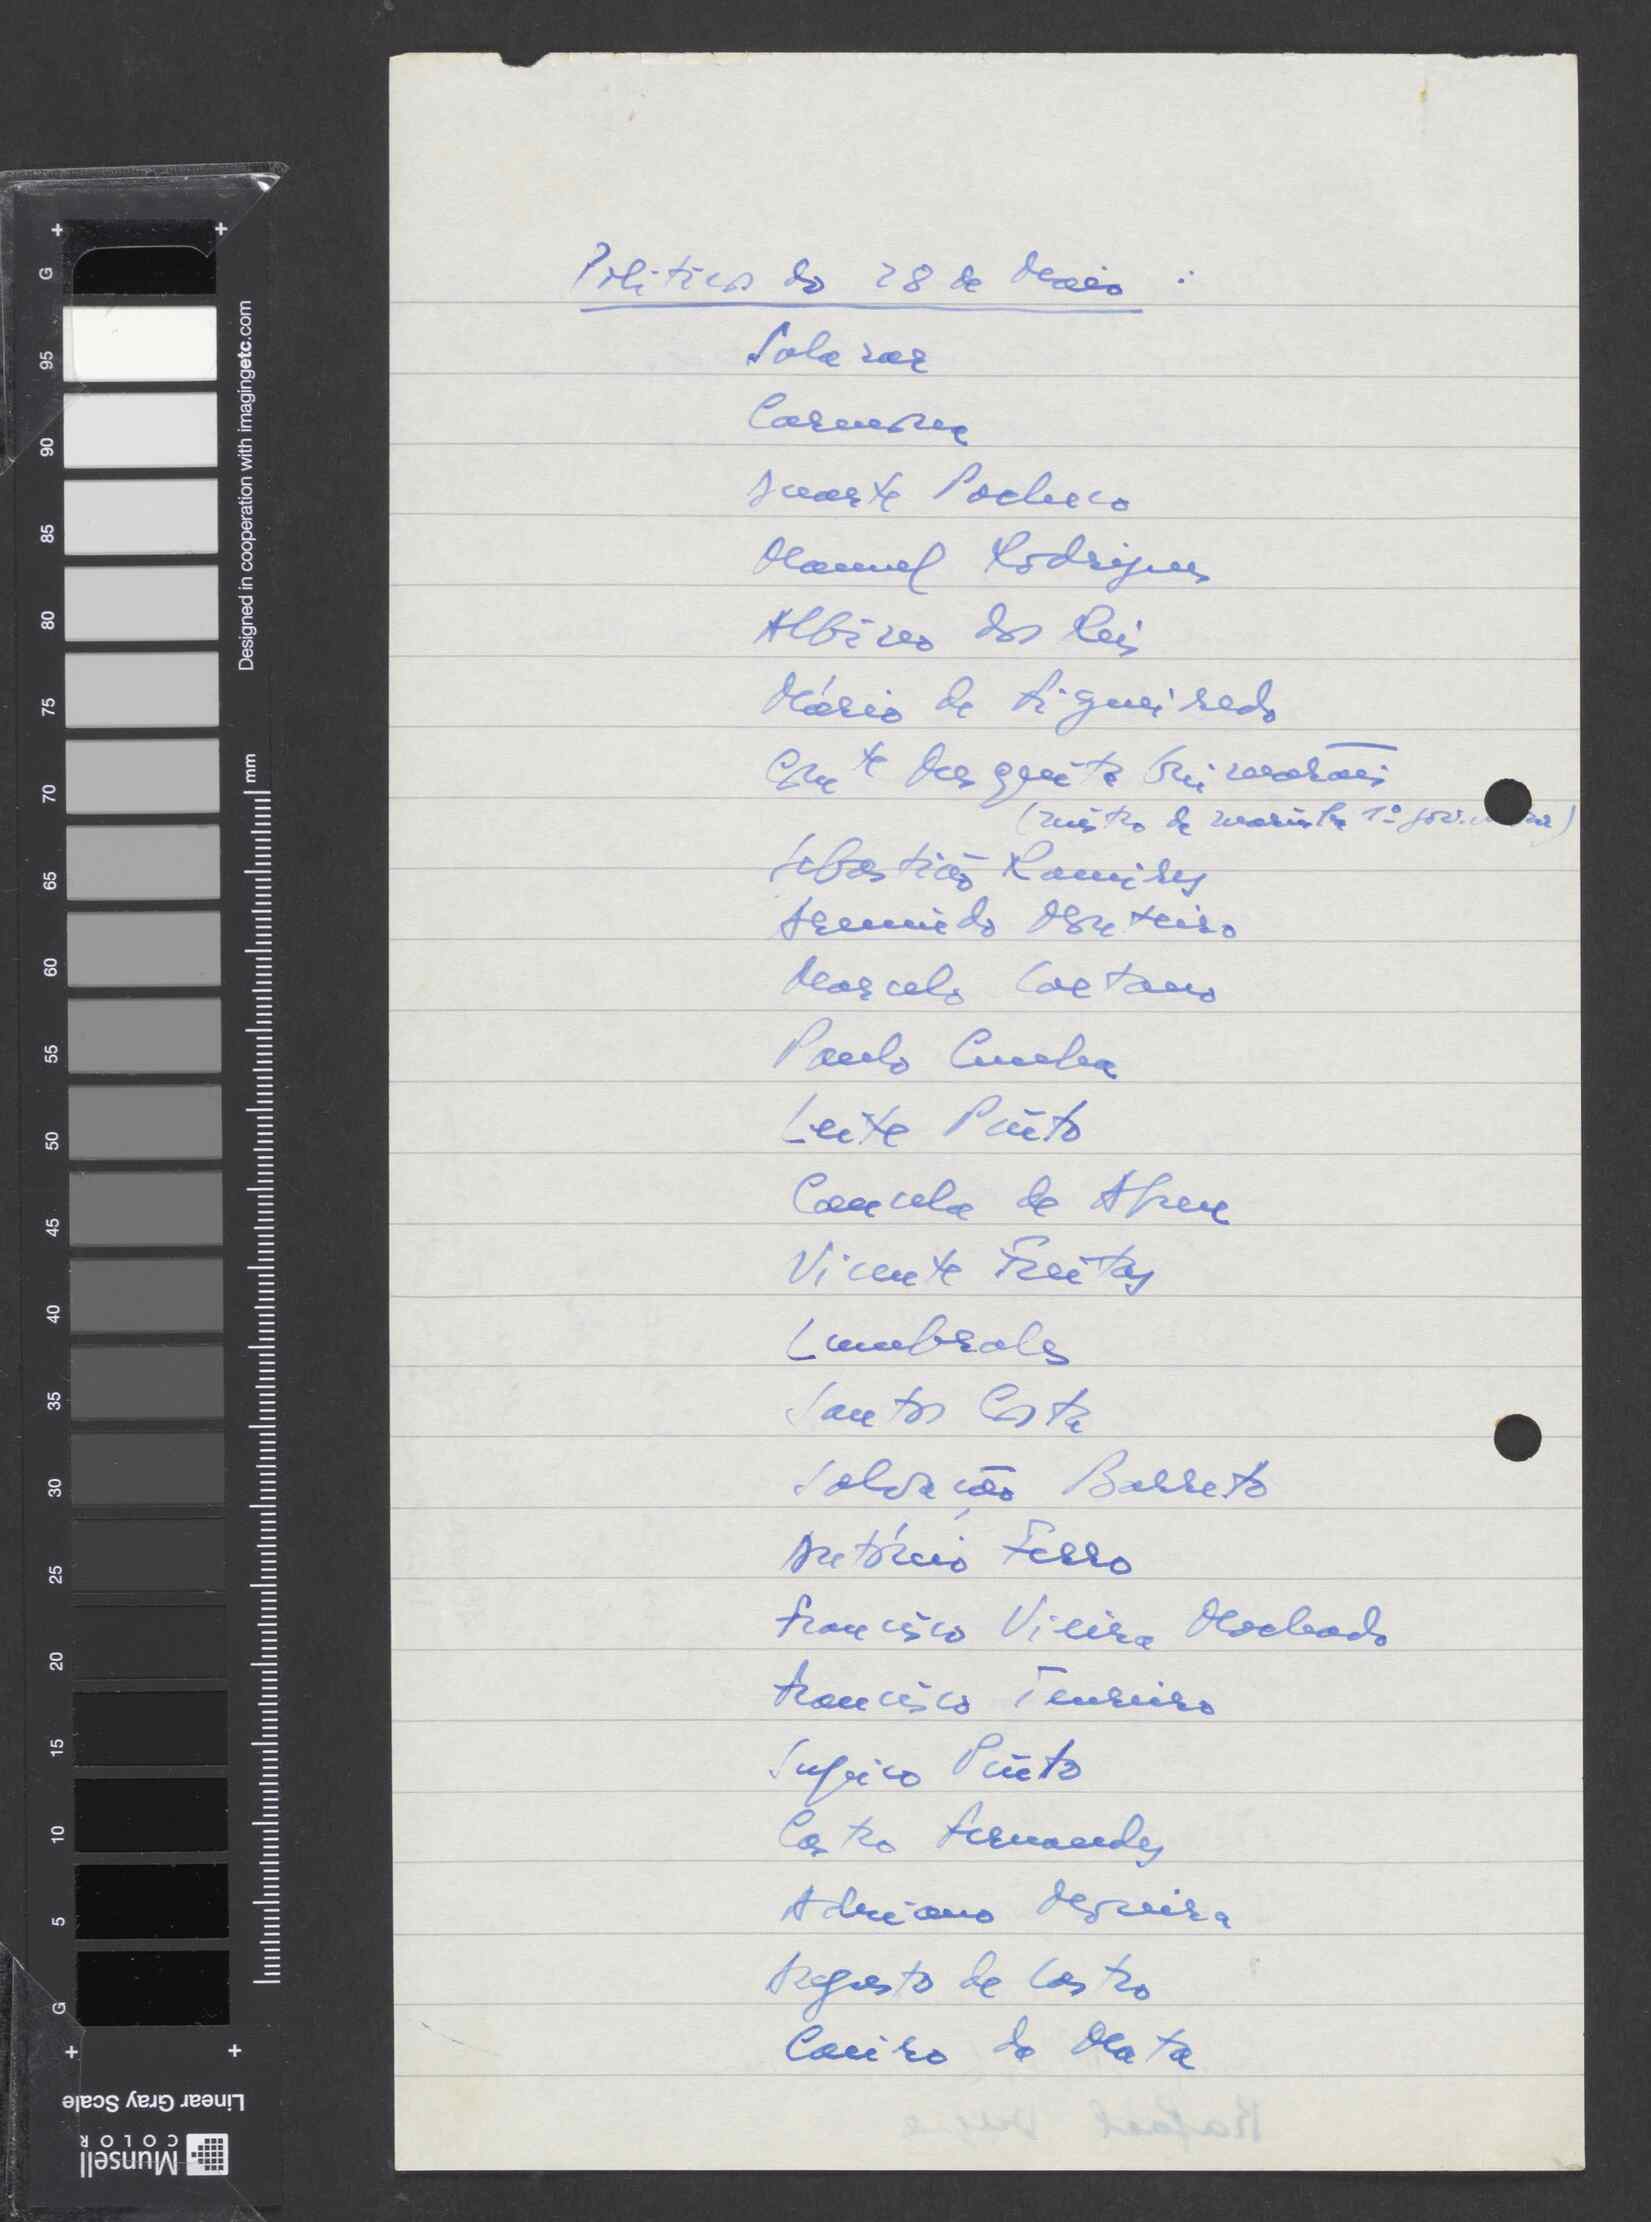 Politicos do 28 de Maio :
Salazar
Carmona
Duarte Pacheco
Manuel Rodrigues
Albino dos Reis
Mário de Figueiredo
Cmte Mesquita Guimarães
(mistro da marinha 1º gov.
Sebastião Ramires
Armindo Monteiro
Marcelo Caetano
Paulo Cunha
Leite Pinto
Cancela de Abreu
Vicente Freitas
Lumbrales
Santos Costa
Salvação Barreto
António Ferro
Francisco Vieira Machado
Francisco Tenreiro
Supico Pinto
Castro Fernandes
Adriano Moreira
Augusto de Castro
Caeiro da Mata
+ +
G 95 90 85 80 75 70 65 60 55 50 45 40 35 30 25 20 15 10 5 G
Designed in cooperation with imagingetc.com
mm
+ +
Linear Gray Scale
Munsell
COLOR